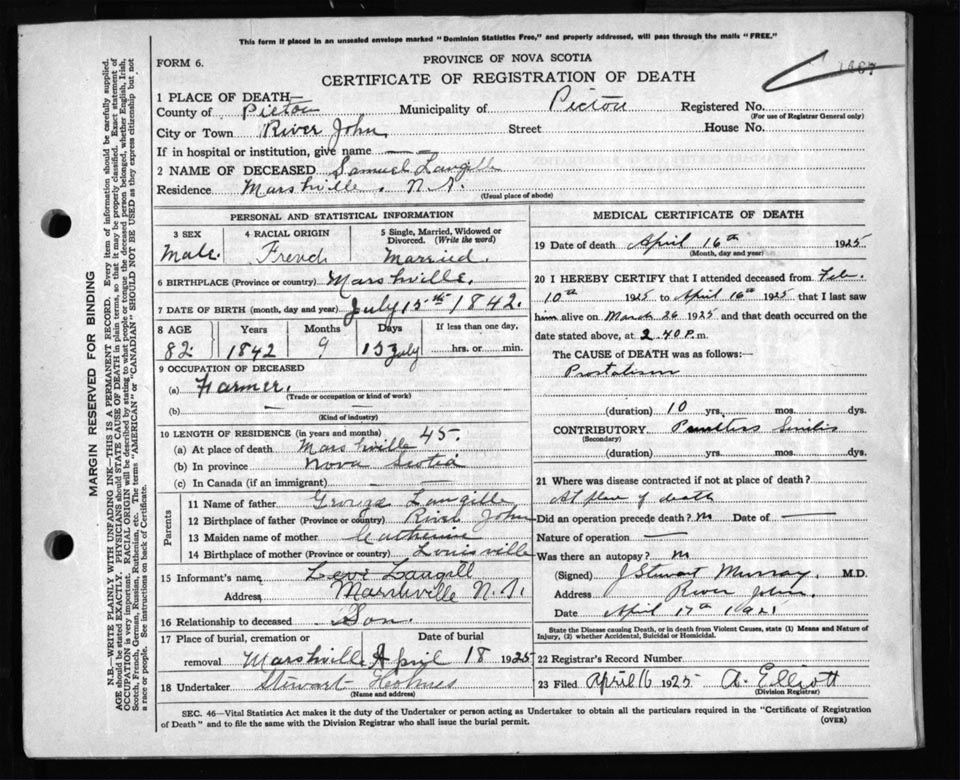 This form if placed in an unsealed envelope marked "Dominion Statistics Free," and properly addressed, will pass through the mails "FREE."
FORM 6.
PROVINCE OF NOVA SCOTIA
CERTIFICATE OF REGISTRATION OF DEATH
1 PLACE OF DEATH—
County of Pictou Municipality of Pictou Registered No.
(For use of Registrar General only)
City or Town River John Street House No.
If in hospital or institution, give name
2 NAME OF DECEASED Samuel Langill
Residence Marshville, N.S.
(Usual place of abode)
PERSONAL AND STATISTICAL INFORMATION
3 SEX 4 RACIAL ORIGIN 5 Single, Married, Widowed or Divorced. (Write the word)
Male. French Married.
6 BIRTHPLACE (Province or country) Marshville.
7 DATE OF BIRTH (month, day and year) July 15th 1842.
8 AGE Years Months Days If less than one day,
82. 1842 9 15 July hrs. or min.
9 OCCUPATION OF DECEASED
(a) Farmer.
(Trade or occupation or kind of work)
(b) —
(Kind of industry)
10 LENGTH OF RESIDENCE (in years and months) 45.
(a) At place of death Marshville
(b) In province Nova Scotia
(c) In Canada (if an immigrant)
Parents
11 Name of father George Langille
12 Birthplace of father (Province or country) River John
13 Maiden name of mother Catherine
14 Birthplace of mother (Province or country) Louisville
15 Informant's name Levi Langill
Address Marshville N.S.
16 Relationship to deceased Son.
17 Place of burial, cremation or Date of burial
removal Marshville April 18 1925
18 Undertaker Stewart Holmes
(Name and address)
MEDICAL CERTIFICATE OF DEATH
19 Date of death April 16th 1925
(Month, day and year)
20 I HEREBY CERTIFY that I attended deceased from Feb.
10th 1925 to April 16th 1925 that I last saw
him alive on March 26 1925 and that death occurred on the
date stated above, at 2.40 P.m.
The CAUSE of DEATH was as follows:—
Prostatism
(duration) 10 yrs. mos. dys.
CONTRIBUTORY
(Secondary)
(duration) yrs. mos. dys.
21 Where was disease contracted if not at place of death?
At place of death
Did an operation precede death? no Date of —
Nature of operation —
Was there an autopsy? no
(Signed) J Stewart Murray, M.D.
Address River John.
Date April 17th
State the Disease causing Death, or in death from Violent Causes, state (1) Means and Nature of
Injury, (2) whether Accidental, Suicidal or Homicidal.
22 Registrar's Record Number
23 Filed April 16 1925 A. Elliott
(Division Registrar)
SEC. 46—Vital Statistics Act makes it the duty of the Undertaker or person acting as Undertaker to obtain all the particulars required in the "Certificate of Registration
of Death" and to file the same with the Division Registrar who shall issue the burial permit.
(OVER)
MARGIN RESERVED FOR BINDING
N.B.—WRITE PLAINLY WITH UNFADING INK—THIS IS A PERMANENT RECORD. Every item of information should be carefully supplied.
AGE should be stated EXACTLY. PHYSICIANS should STATE CAUSE OF DEATH in plain terms, so that it may be properly classified. Exact statement of
OCCUPATION is very important. RACIAL ORIGIN will be described by stating to what people or tongue the deceased person belonged, whether English, Irish,
Scotch, French, German, Russian, Ruthenian, etc. The terms "AMERICAN" or "CANADIAN" SHOULD NOT BE USED as they express citizenship but not
a race or people. See instructions on back of Certificate.